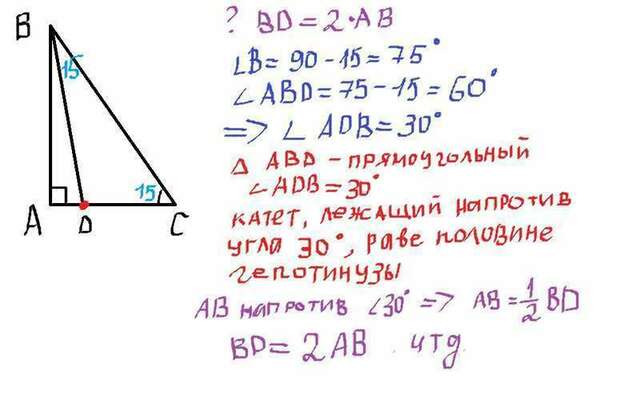 ? BD = 2·AB
∠B = 90 - 15 = 75°
∠ABD = 75 - 15 = 60°
=> ∠ADB = 30°
Δ ABD - прямоугольный
∠ADB = 30°
катет, лежащий напротив
угла 30°, раве половине
гепотинузы
AB напротив ∠30° => AB = 1/2 BD
BD = 2AB . чтд
B
15
15
A
D
C